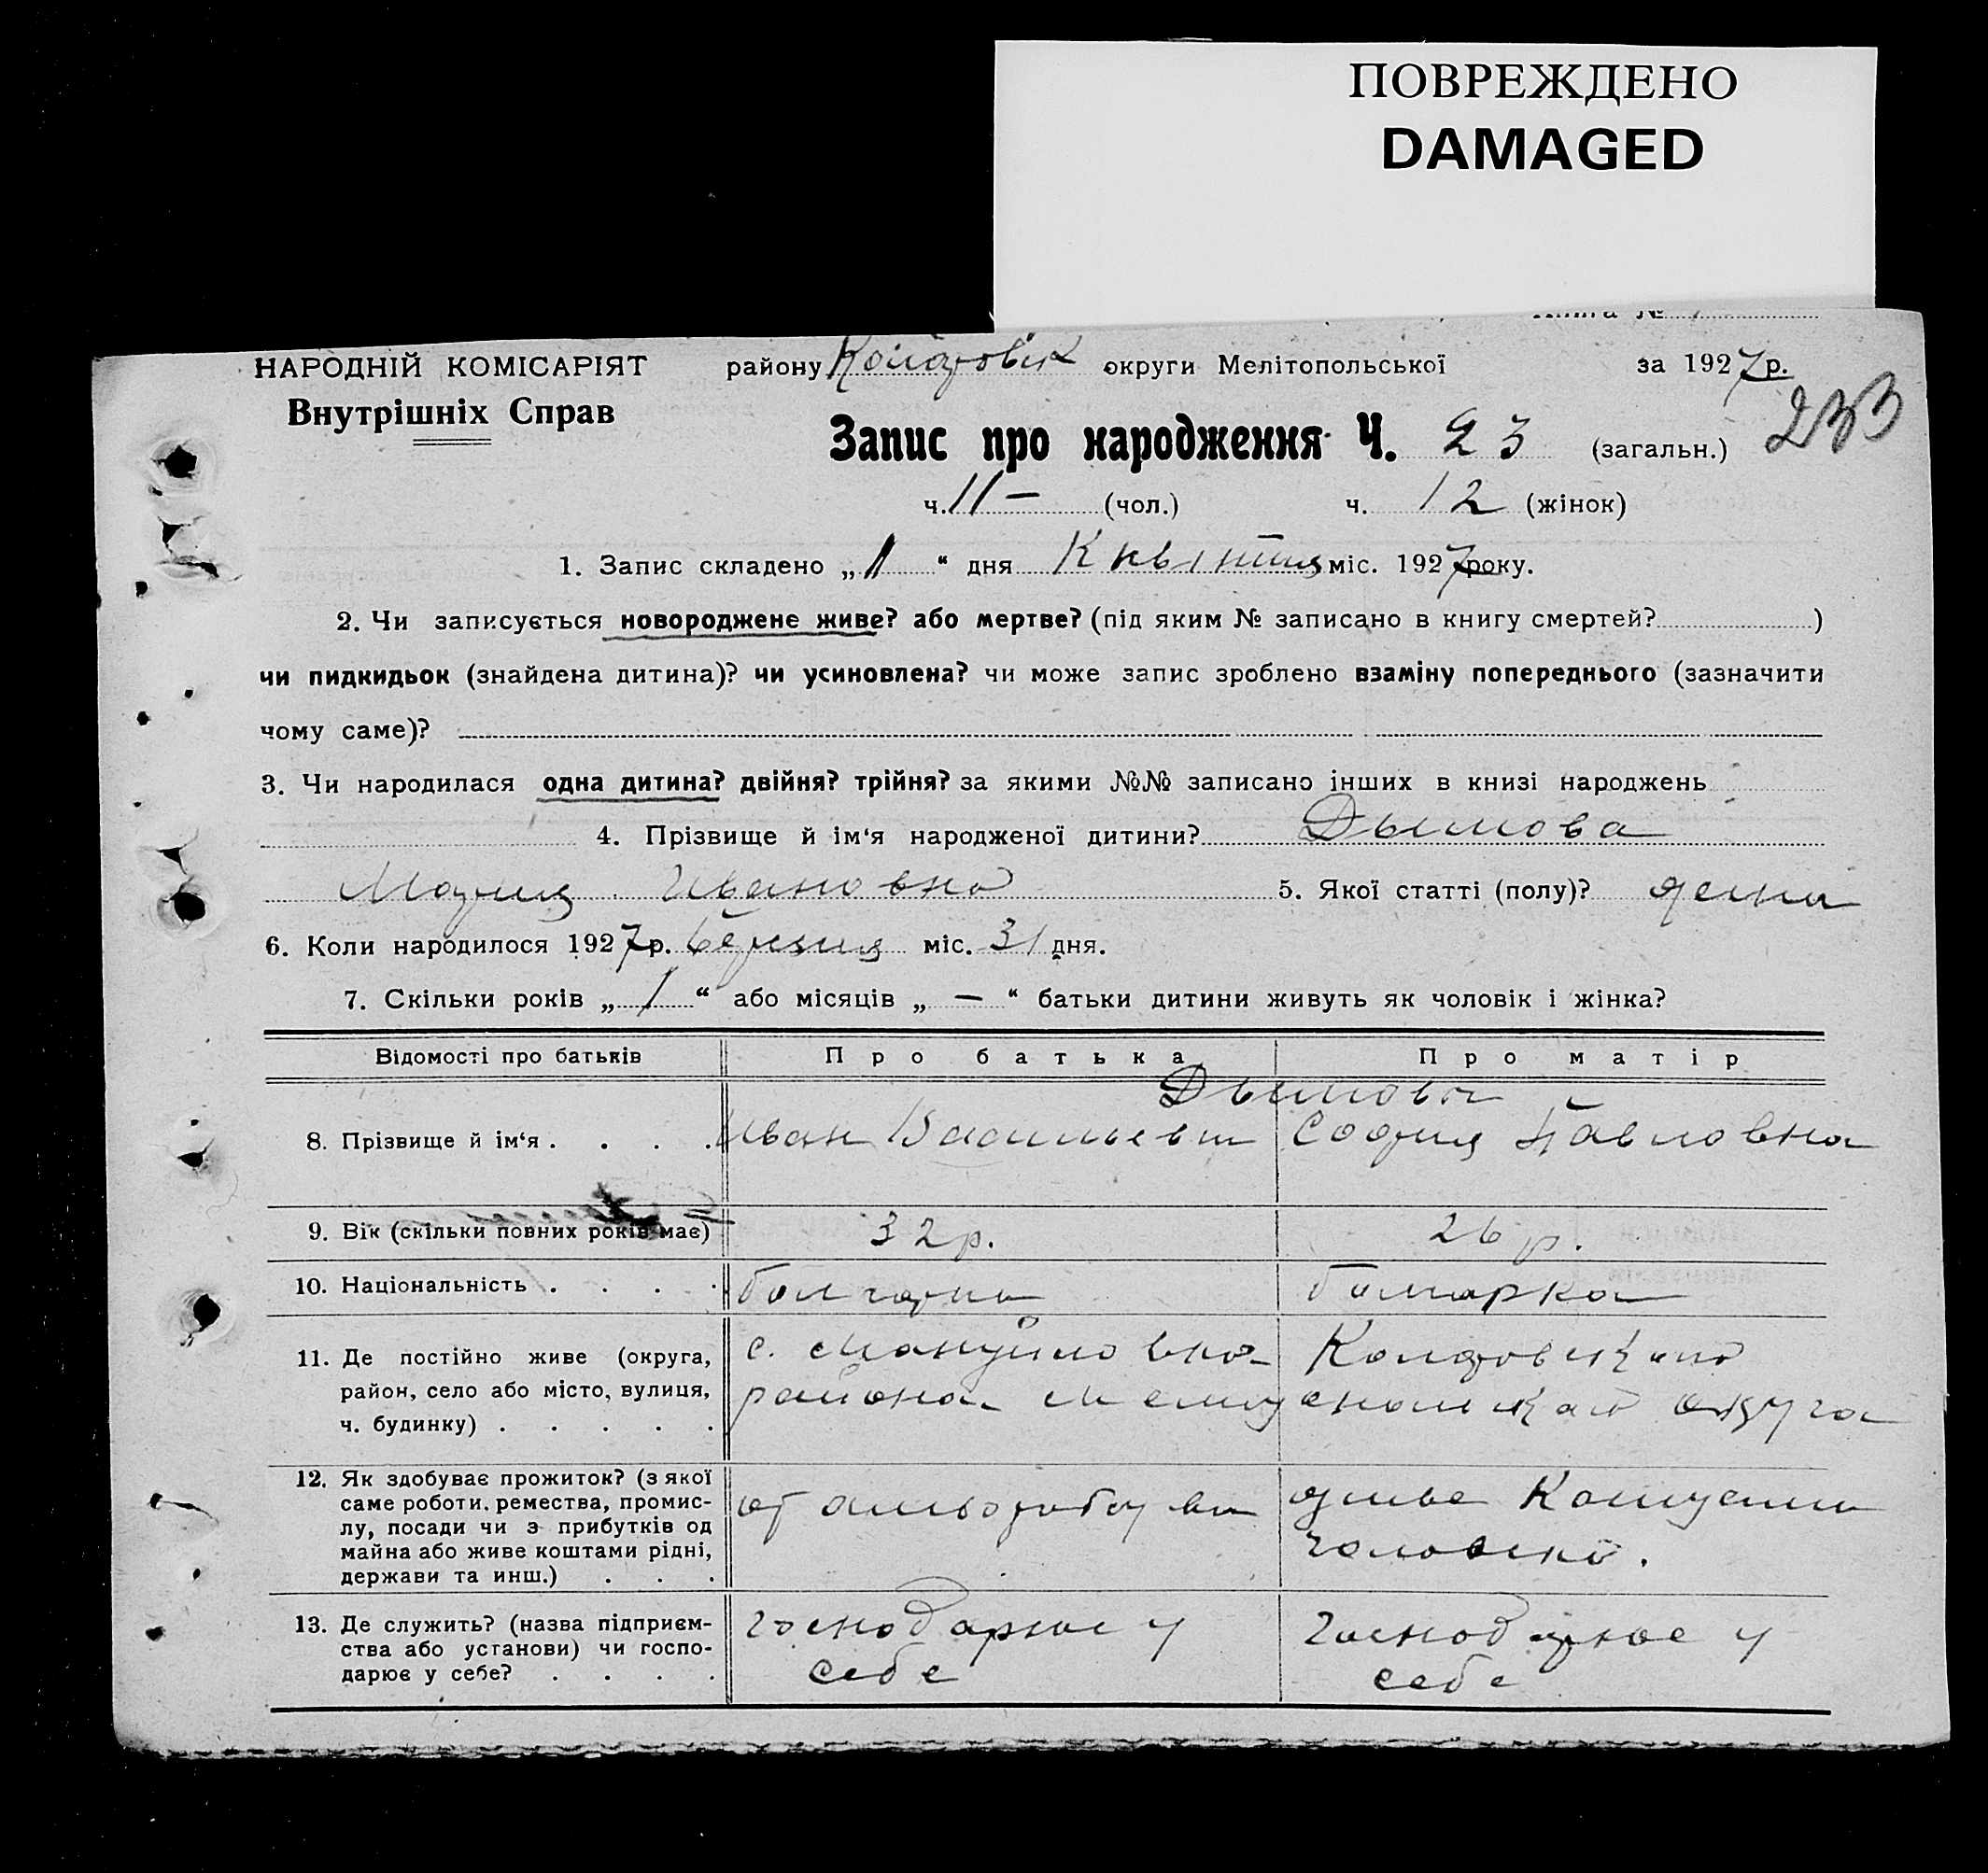 ПОВРЕЖДЕНО
DAMAGED
НАРОДНІЙ КОМІСАРІЯТ району округи Мелітопольської за 1927р.
Внутрішніх Справ
233
Запис про народження Ч. 23 (загальн.)
ч. 11 — (чол.) ч. 12 (жінок)
1. Запис складено „1“ дня Квытня міс. 1927 року.
2. Чи записується новороджене живе? або мертве? (під яким № записано в книгу смертей? )
чи пидкидьок (знайдена дитина)? чи усиновлена? чи може запис зроблено взаміну попереднього (зазначити
чому саме)?
3. Чи народилася одна дитина? двійня? трійня? за якими №№ записано інших в книзі народжень
4. Прізвище й ім‘я народженої дитини? Дымова
Мария Ивановна 5. Якої статті (полу)?
6. Коли народилося 1927р. березня міс. 31 дня.
7. Скільки років „1“ або місяців „—“ батьки дитини живуть як чоловік і жінка?
Відомості про батьків Про батька Про матір
Дымовы
8. Прізвище й ім‘я . . . . Иван Васильев София Павловна
9. Вік (скільки повних років має) 32 р. 26 р.
10. Національність . . . . болгарин болгарка
11. Де постійно живе (округа, с. Мануйловка
район, село або місто, вулиця, района округа
ч. будинку) . . . . .
12. Як здобуває прожиток? (з якої
саме роботи, ремества, промис-
лу, посади чи з прибутків од
майна або живе коштами рідні,
держави та инш.) . . .
13. Де служить? (назва підприєм- господарює у господарює у
ства або установи) чи госпо- себе себе
дарює у себе? . . . .